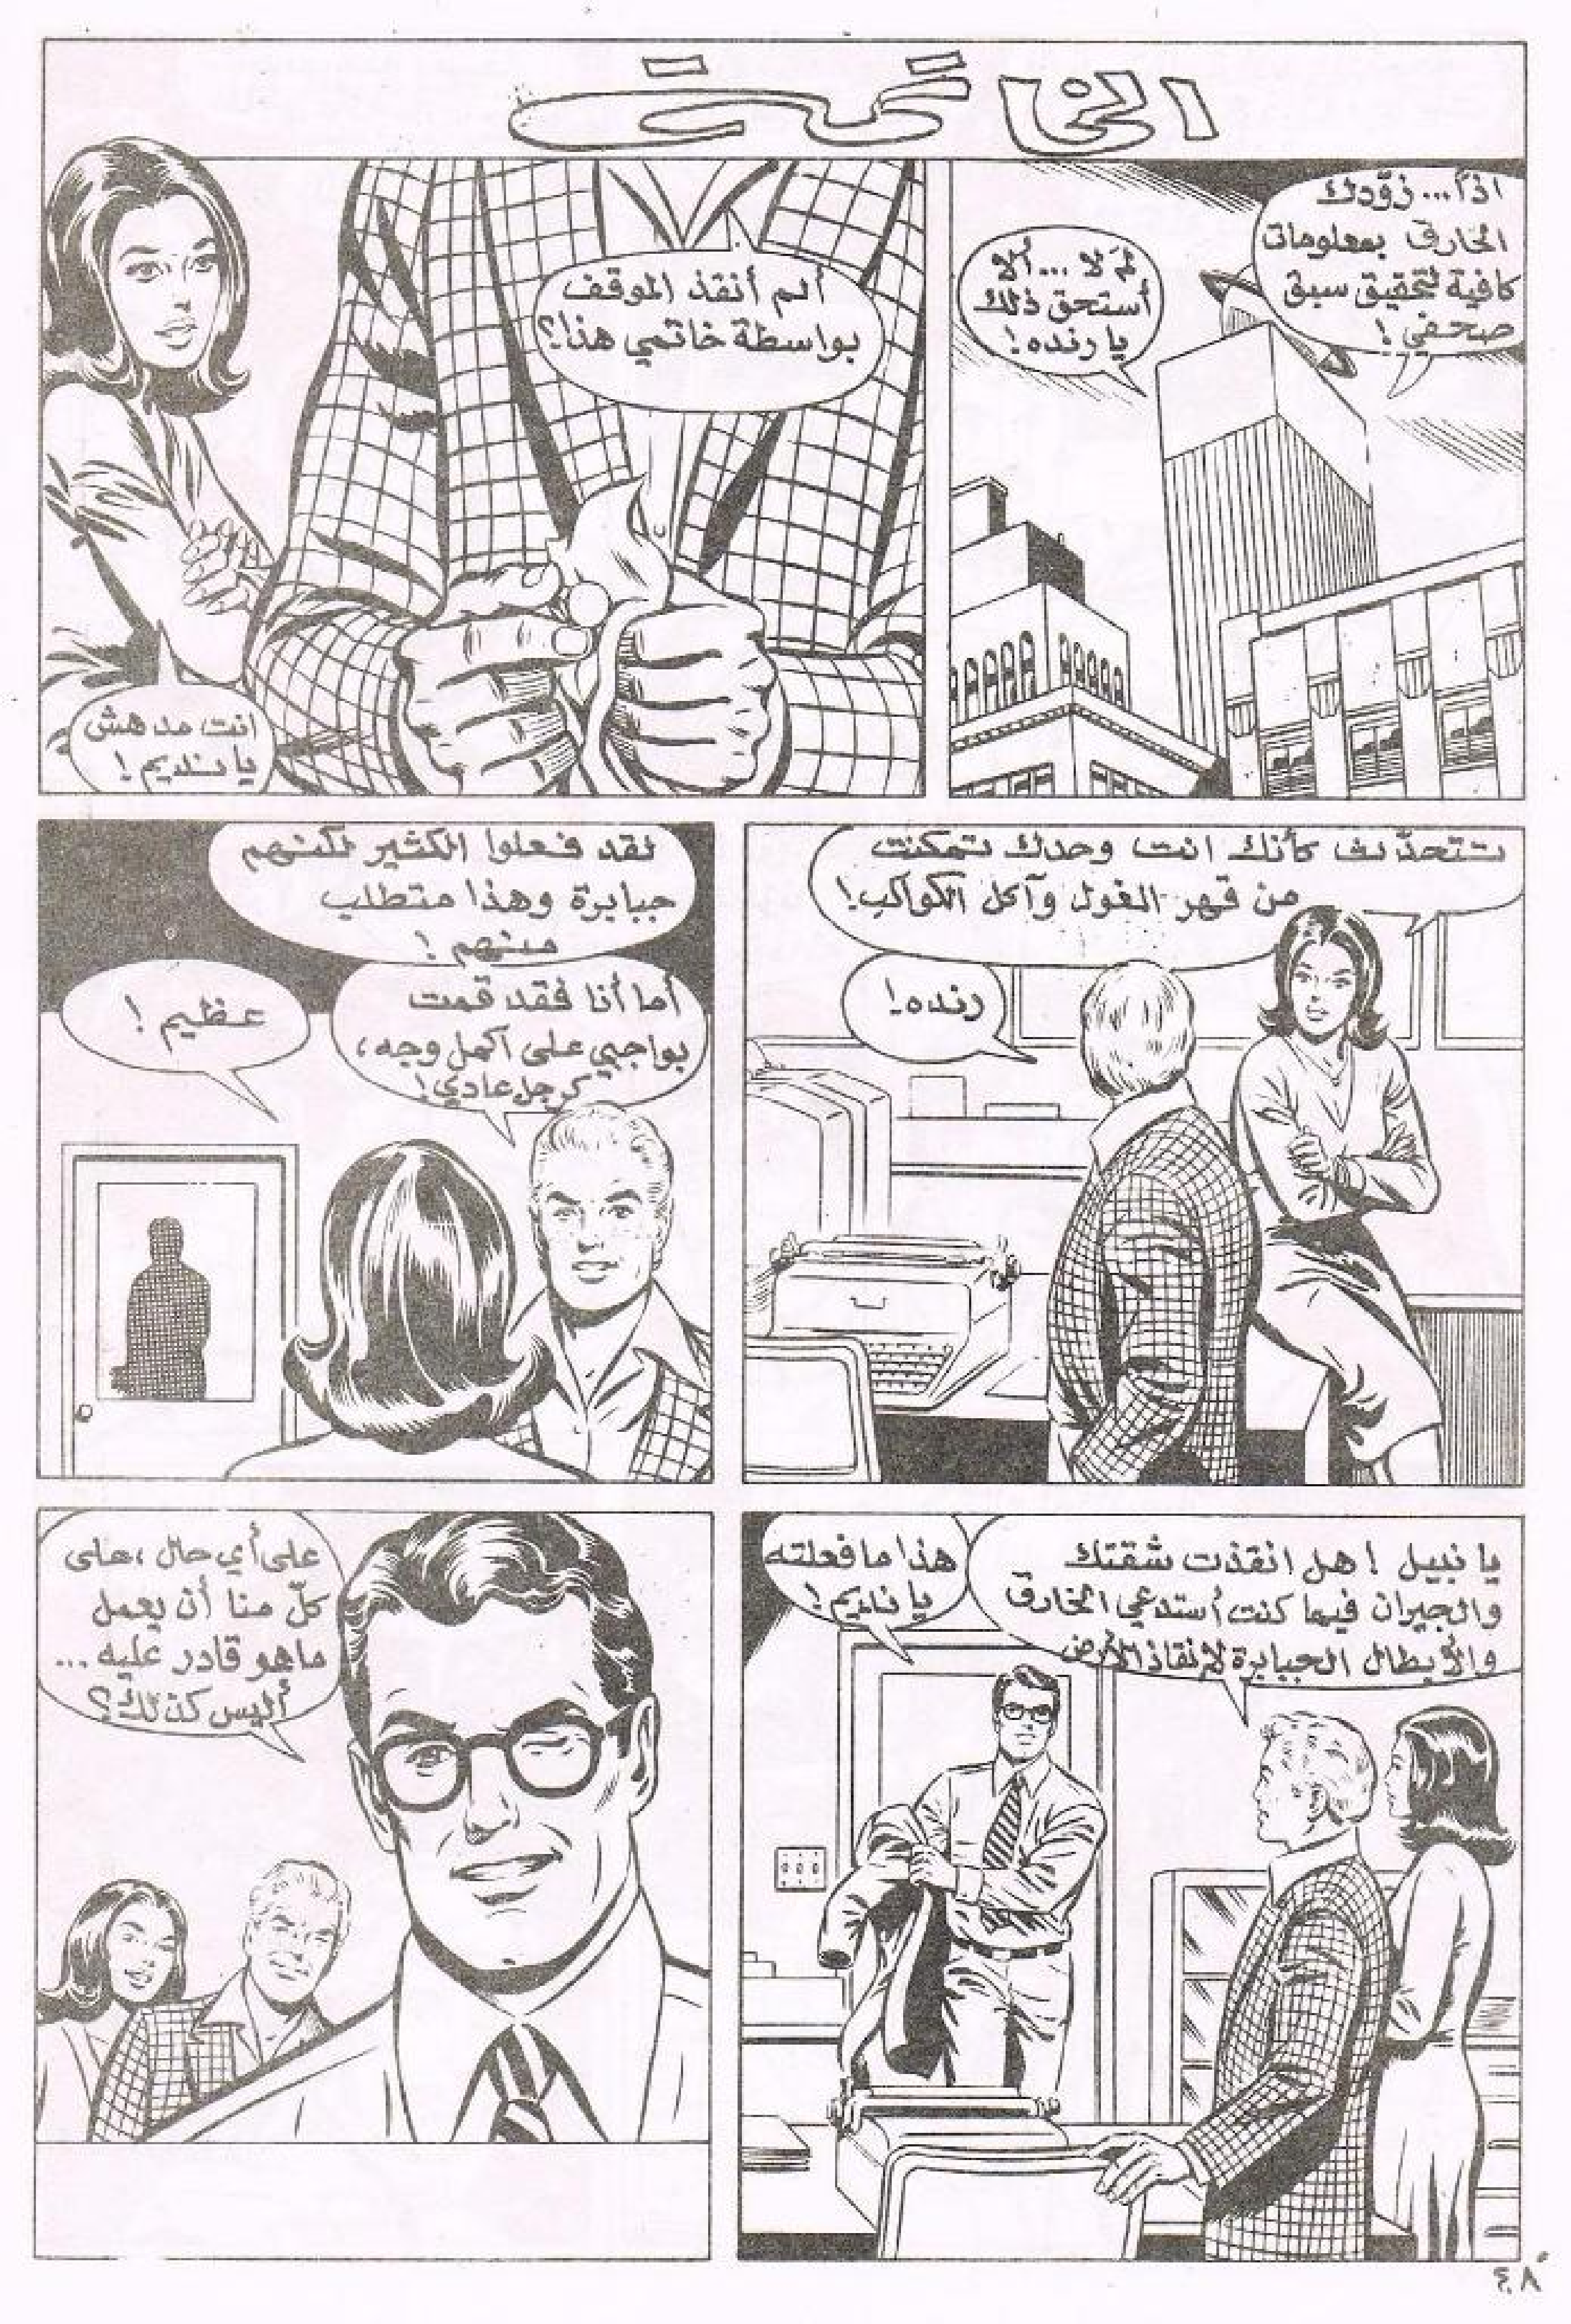 الخاتمة
اذاً... زوّدك
الخارق بمعلومات
كافية لتحقيق سبق
صحفي!
لمَ لا ...ألا
أستحق ذلك
يا رنده!
ألم أنقذ الموقف
بواسطة خاتمي هذا؟
انت مدهش
يا نديم!
تتحدّث كأنك انت وحدك تمكنت
من قهر الغول وآكل الكواكب!
رنده!
لقد فعلوا الكثير لكنهم
جبابرة وهذا متطلب
منهم!
أما أنا فقد قمت
بواجبي على اكمل وجه،
كرجل عادي!
عظيم!
يا نبيل! هل انقذت شقتك
والجيران فيما كنت أستدعي الخارق
والأبطال الجبابرة لإنقاذ الأرض
هذا ما فعلته
يا نديم!
على أي حال، على
كلّ منا أن يعمل
ما هو قادر عليه...
أليس كذلك؟